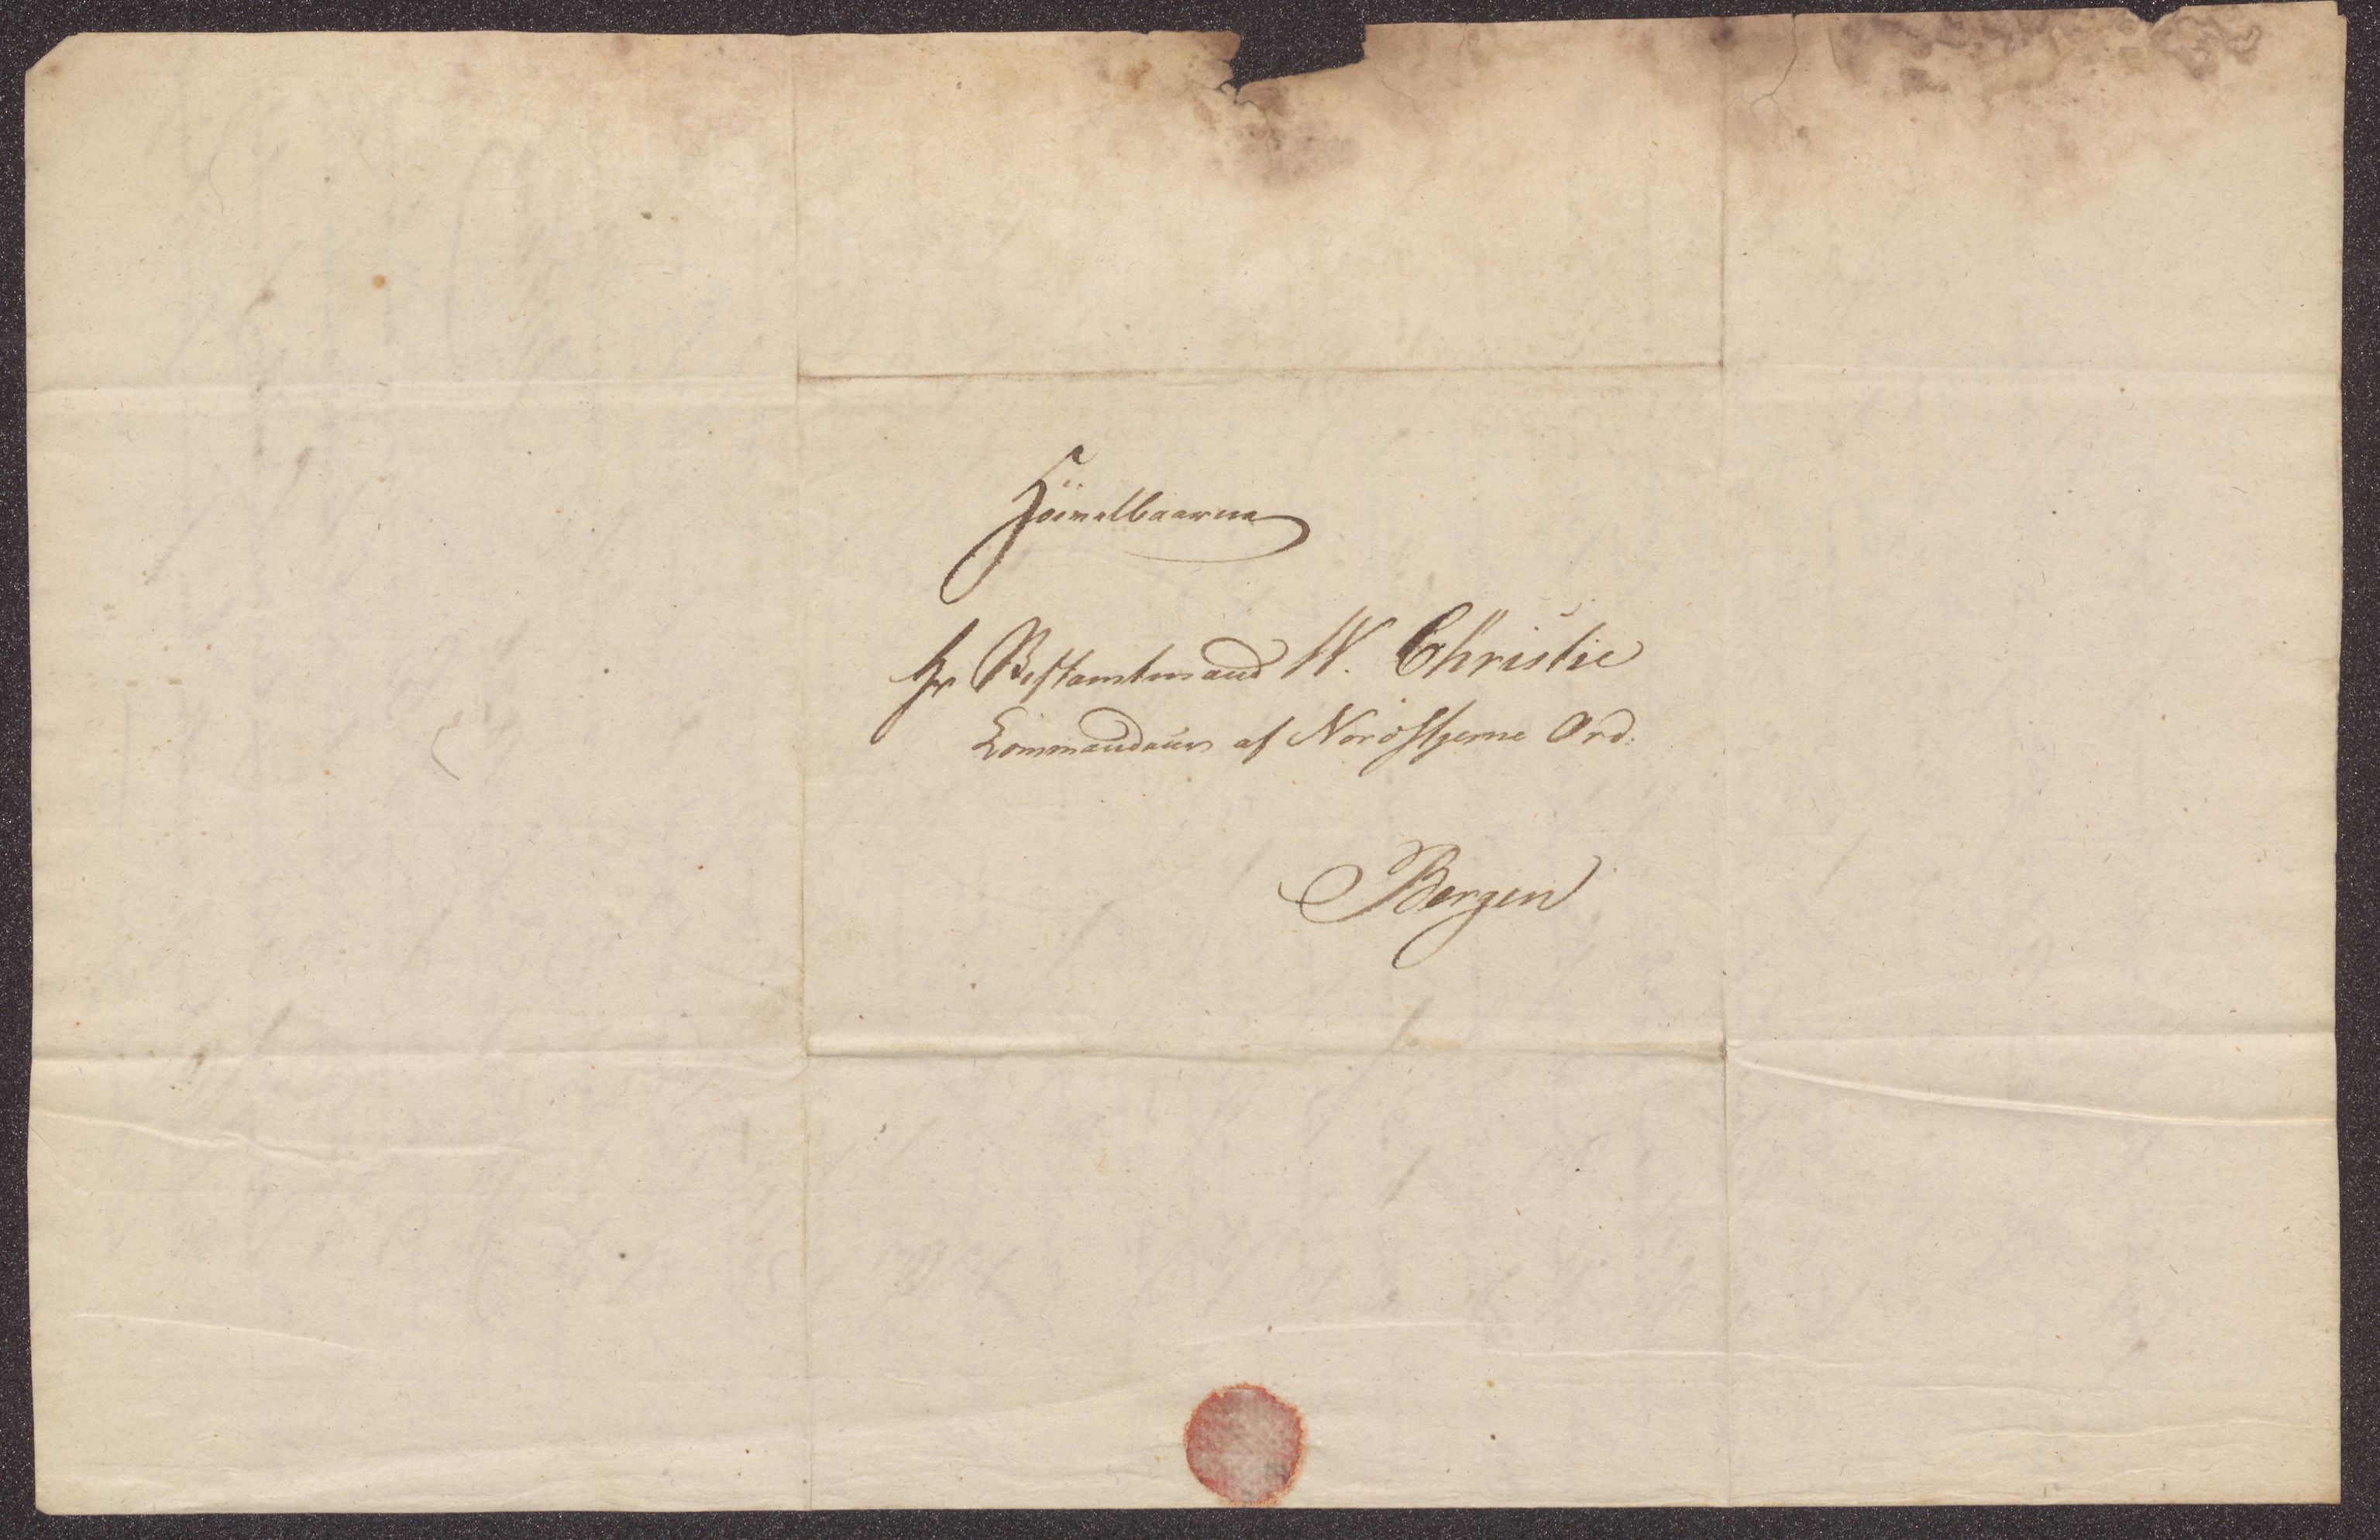 Höivelbaarne
Hr Stiftamtmand W. Christie
Kommandeur af Nordstjerne Ord.
Bergen